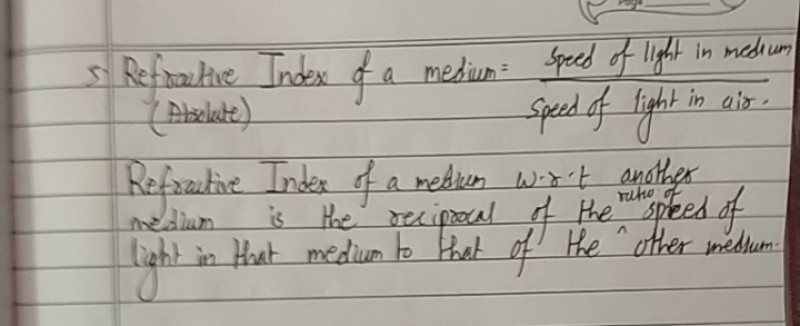 5) Refractive Index of a medium = Speed of light in medium
(Absolute) Speed of light in air.
Refractive Index of a medium w.r.t another
medium is the reciprocal of the ratio of speed of
light in that medium to that of the ^ other medium.